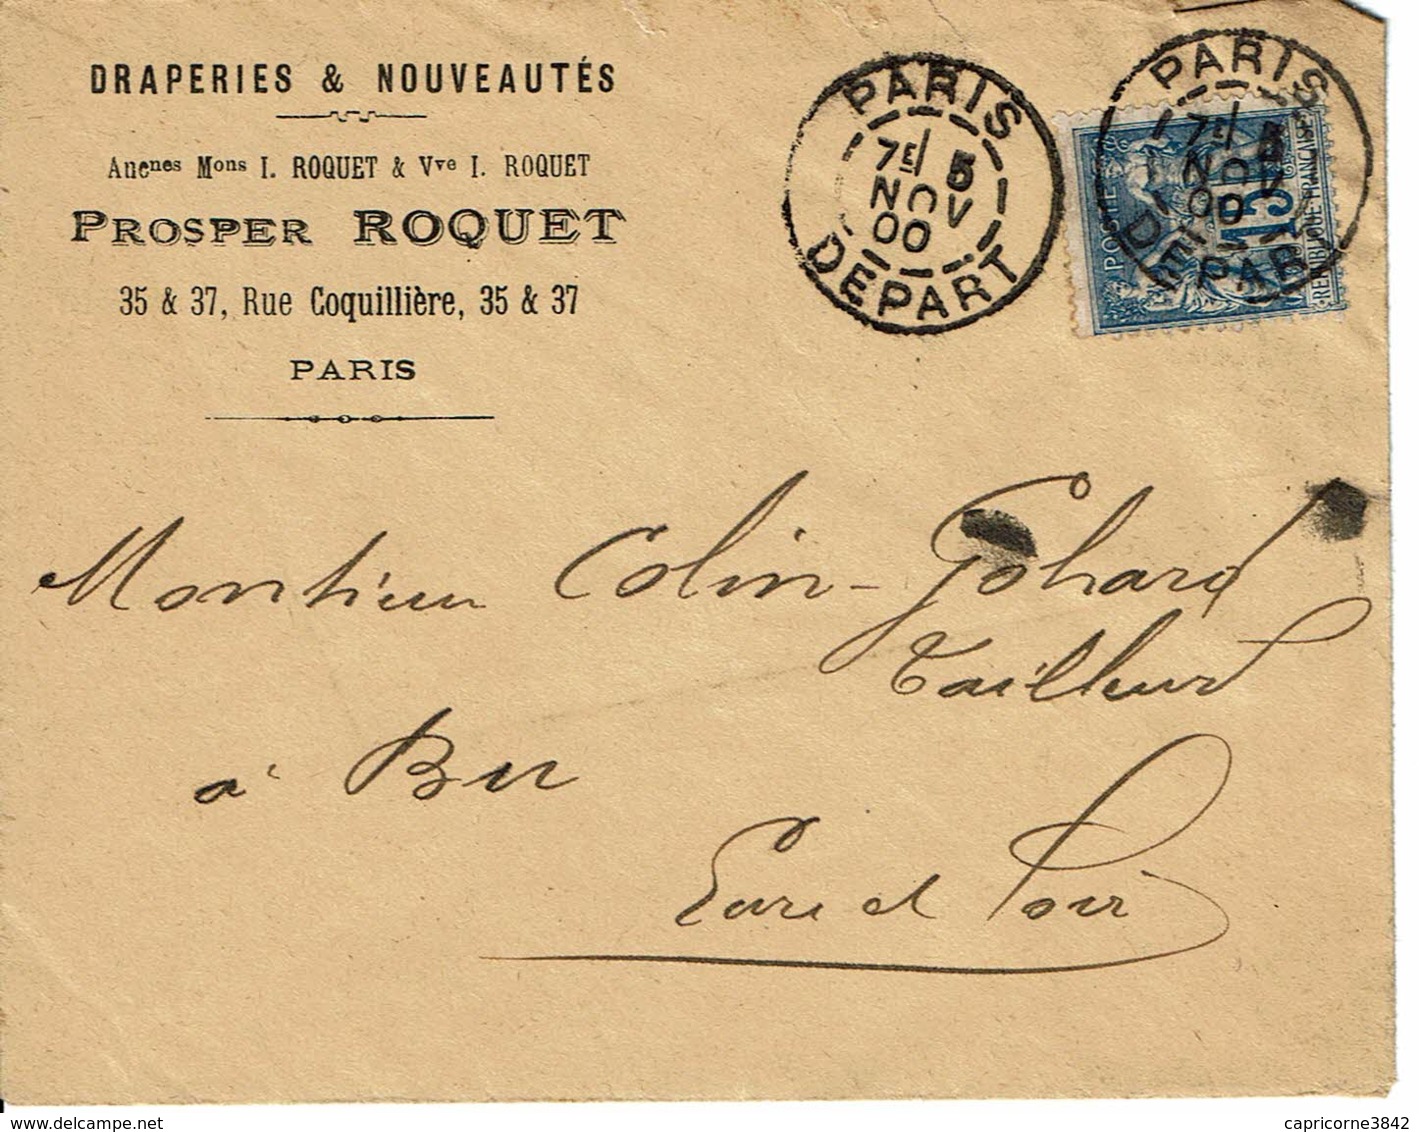 DRAPERIES & NOUVEAUTÉS
Ancnes Mons I. ROQUET & Vve I. ROQUET
PROSPER ROQUET
35 & 37, Rue Coquillière, 35 & 37
PARIS
PARIS
7E 5
NOV
00
DEPART
PARIS
7E 5
NOV
00
DEPAR
POSTE
15
REPUBLIQUE FRANÇAISE
Monsieur Colin-Gohard
Tailleur
à Bu
Eure et Loir
www.delcampe.net
capricorne3842